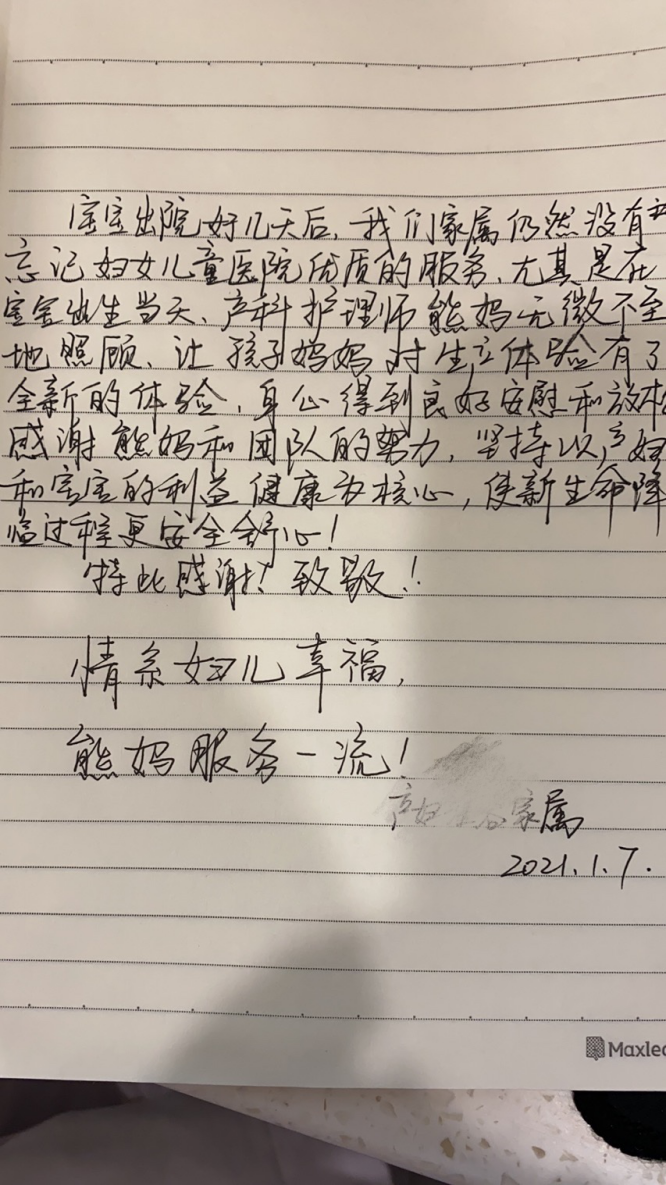 宝宝出院好几天后，我们家属仍然没有
忘记妇女儿童医院优质的服务，尤其是在
宝宝出生当天、产科护理师熊妈无微不至
地照顾、让孩子妈妈对生立体验有了
全新的体验，身心得到良好安慰和放松
感谢熊妈和团队的努力，坚持以产妇
和宝宝的利益健康为核心，使新生命降
临过程更安全舒心！
特此感谢！致敬！
情系妇儿幸福，
熊妈服务一流！
产妇 家属
2021.1.7.
Maxlea